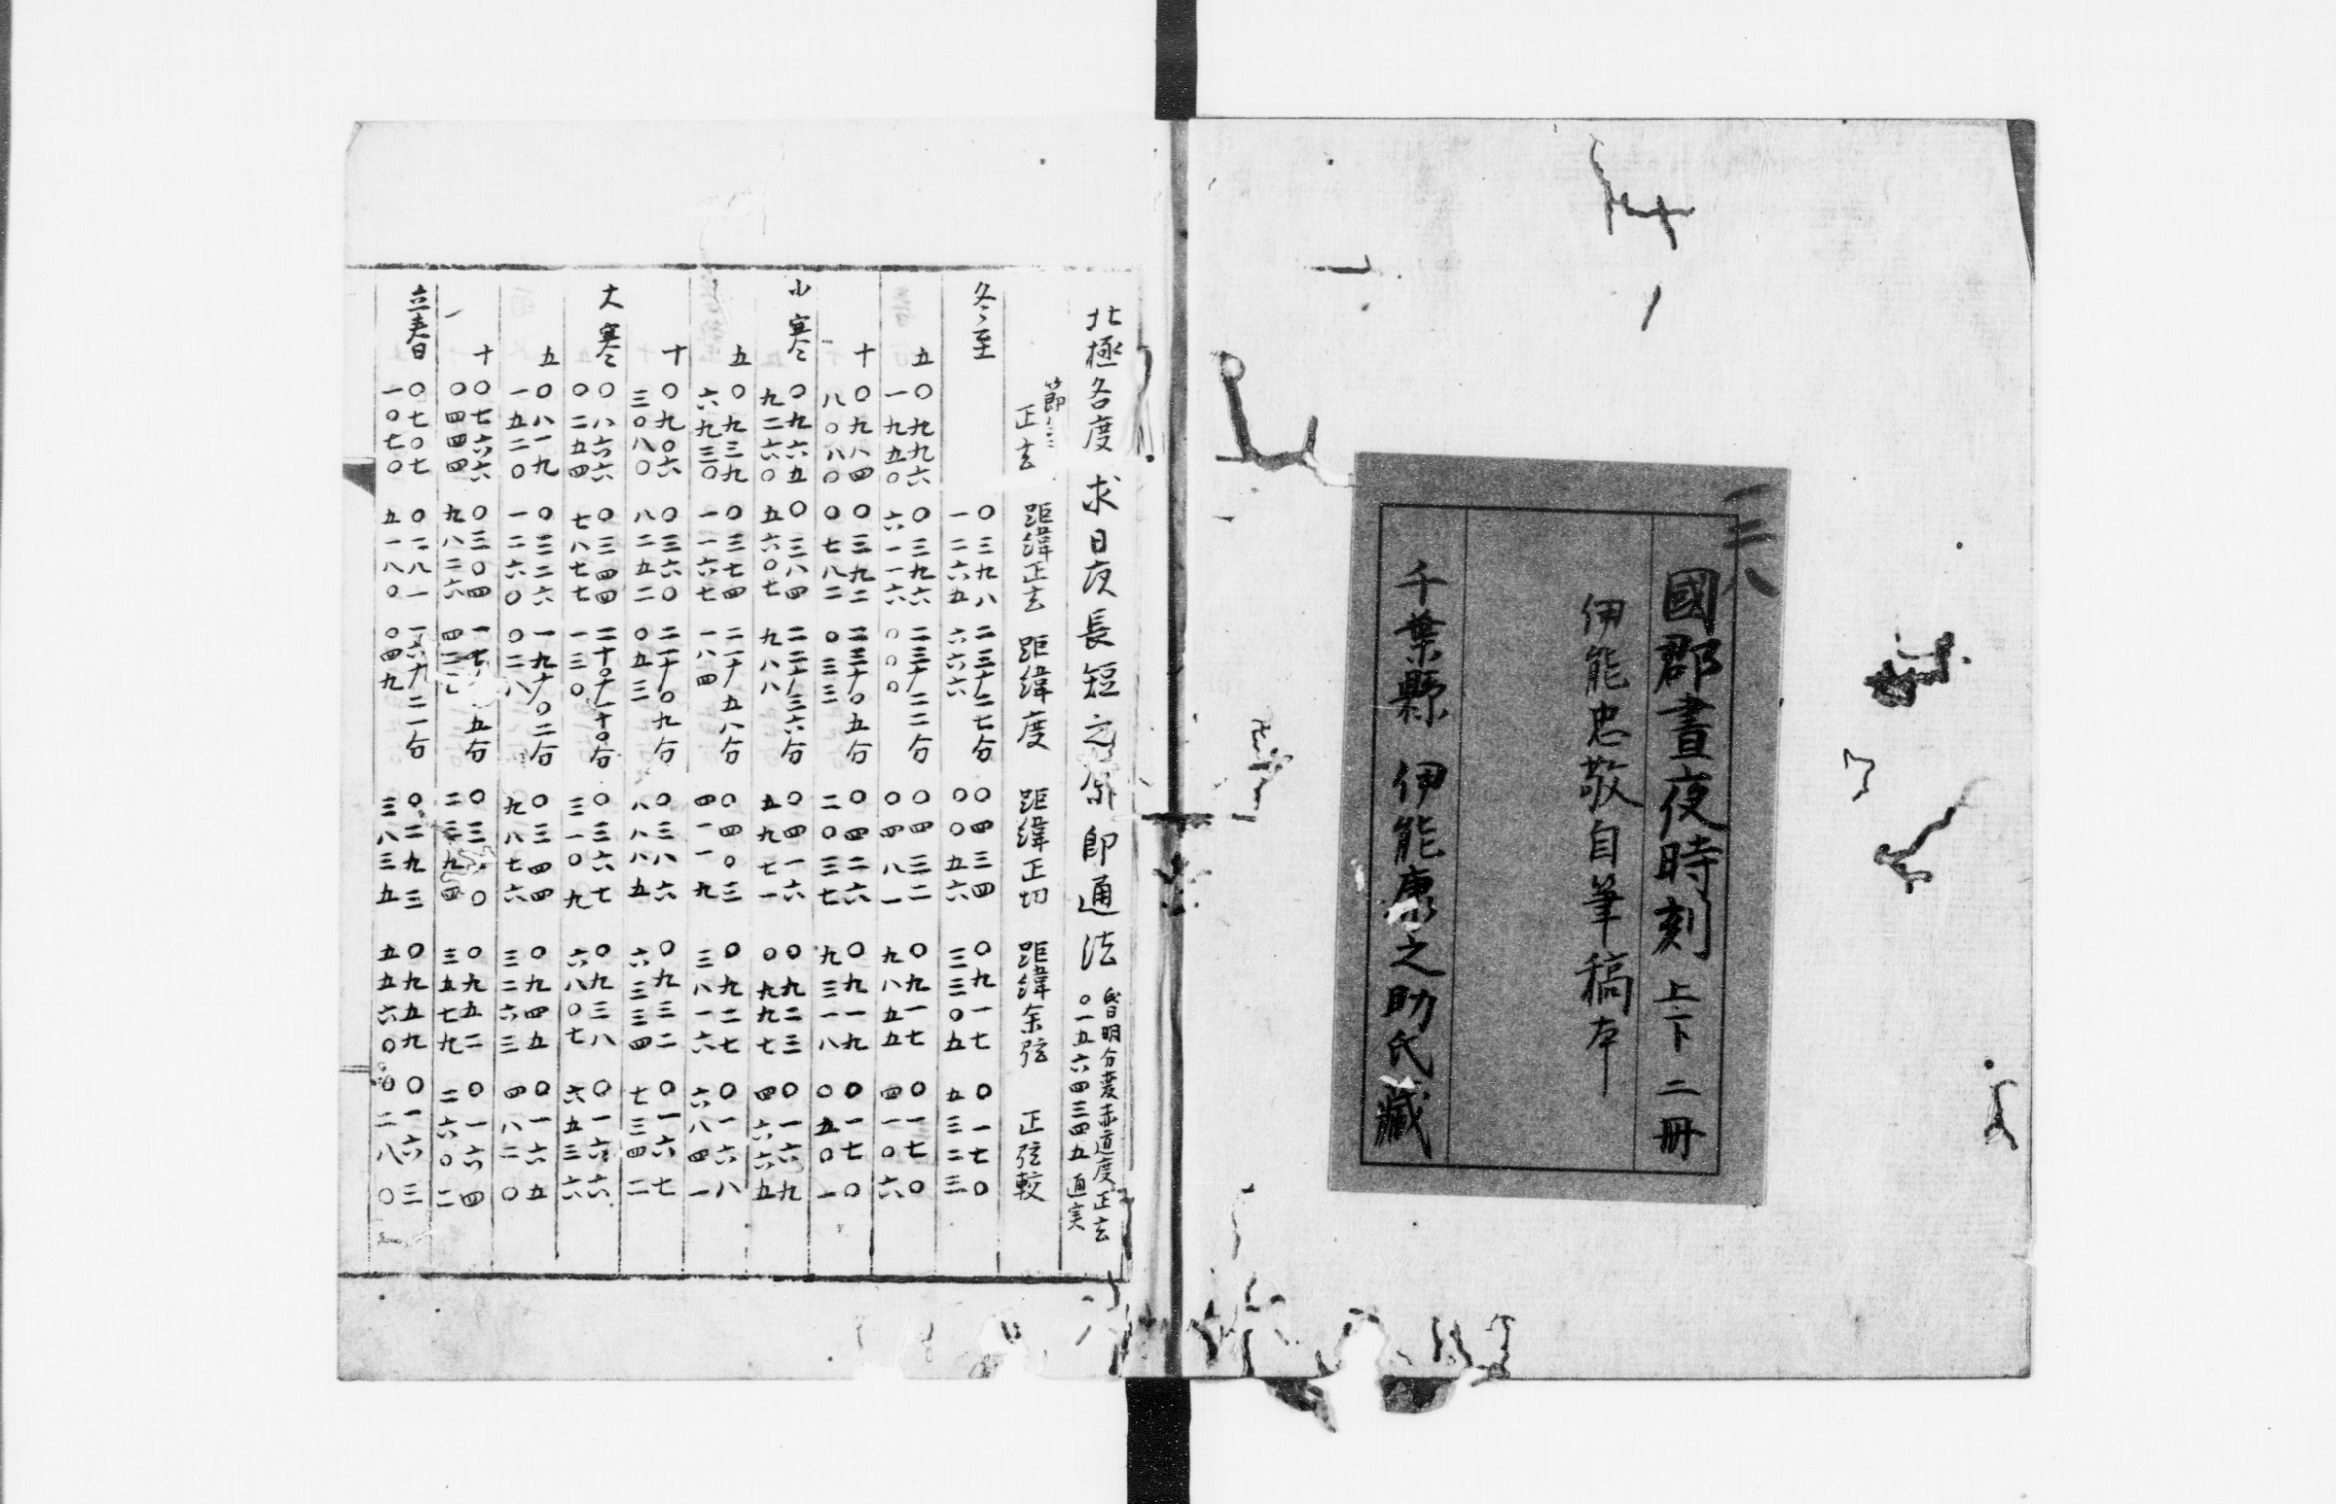 一二八
國郡晝夜時刻 上下 二冊
伊能忠敬自筆稿本
千葉縣 伊能康之助氏藏
北極各度求日夜長短之原即通法
昏明分度赤道度正玄
〇一五六四三四五 通実
節 正玄 距緯正玄 距緯度 距緯正切 距緯余弦 正弦較
冬至 〇三九八 二三十二七分 〇四三四 〇九一七 〇一七〇
一二六五 六六六 〇〇五六 三三〇五 五三二三
五 〇九九六 〇三九六 二三十二二分 〇四三二 〇九一七 〇一七〇
一九五〇 六一一六 〇〇〇 〇四八一 九八五五 四一〇六
十 〇九八四 〇三九二 二三十〇五分 〇四二六 〇九一九 〇一七〇
八〇八〇 〇七八二 〇三三 二〇三七 九三一八 〇五〇一
小寒 〇九六五 〇三八四 二二十三六分 〇四一六 〇九二三 〇一六九
九二六〇 五六〇七 九八八 五九七一 〇九九七 四六六五
五 〇九三九 〇三七四 二一十五八分 〇四〇三 〇九二七 〇一六八
六九三〇 一一六七 一八四 四一一九 三八一六 六八四一
十 〇九〇六 〇三六〇 二一十〇九分 〇三八六 〇九三二 〇一六七
三〇八〇 八二五二 〇五三 八八八五 六三三四 七三四二
大寒 〇八六六 〇三四四 二十〇十一十〇分 〇三六七 〇九三八 〇一六六
〇二五四 七八七七 一三〇 三一〇九 六八〇七 六五三六
五 〇八一九 〇三二六 一九十〇二分 〇三四四 〇九四五 〇一六五
一五二〇 一二六〇 〇二八 九八七六 三二六三 四八二〇
十 〇七六六 〇三〇四 一七 五分 〇三 〇 〇九五二 〇一六四
〇四四四 九八二六 四二 二三九四 三五七九 二六〇二
立春日 〇七〇七 〇二八一 一六十二一分 〇二九三 〇九五九 〇一六三
一〇七〇 五一八〇 〇四九 三八三五 五五六〇 〇二八〇